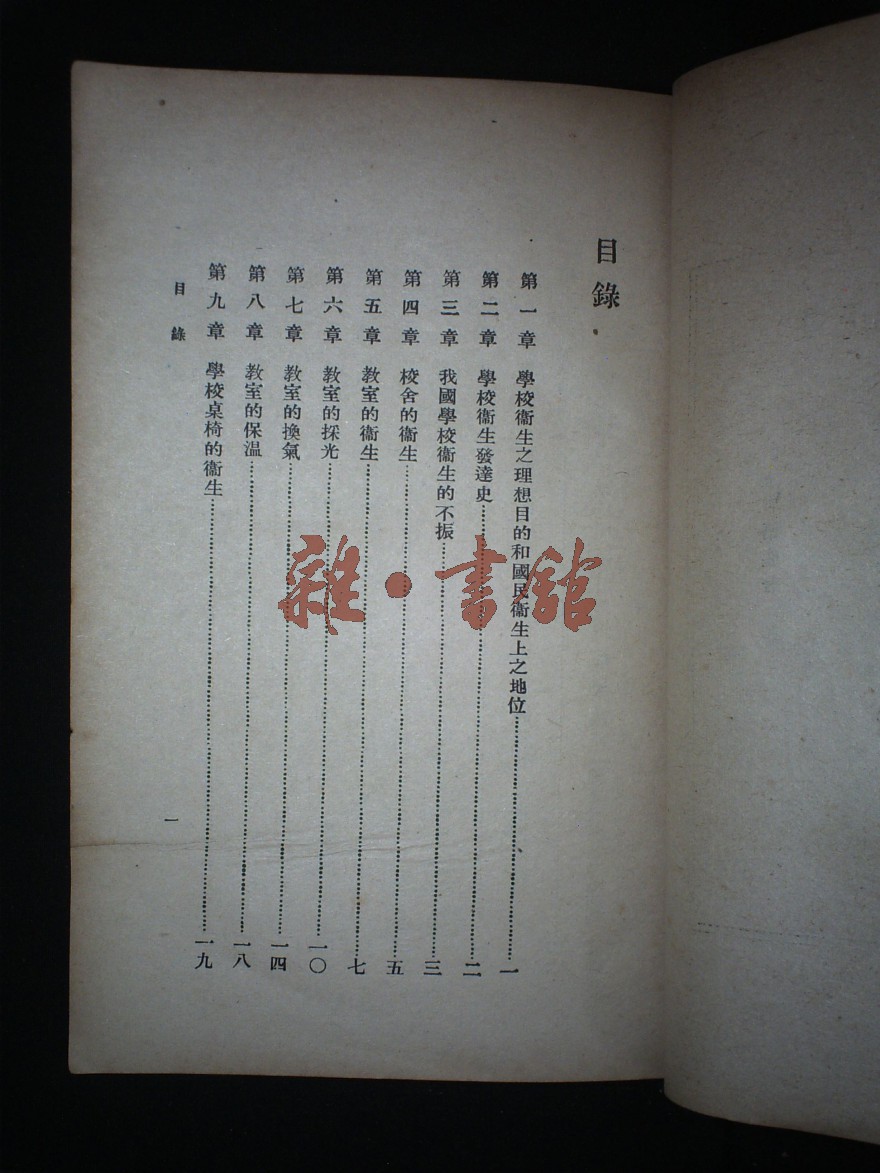 目錄
第一章 學校衞生之理想目的和國民衞生上之地位……一
第二章 學校衞生發達史……二
第三章 我國學校衞生的不振……三
第四章 校舍的衞生……五
第五章 教室的衞生……七
第六章 教室的採光……一〇
第七章 教室的換氣……一四
第八章 教室的保溫……一八
第九章 學校桌椅的衞生……一九
目錄
一
雜·書館